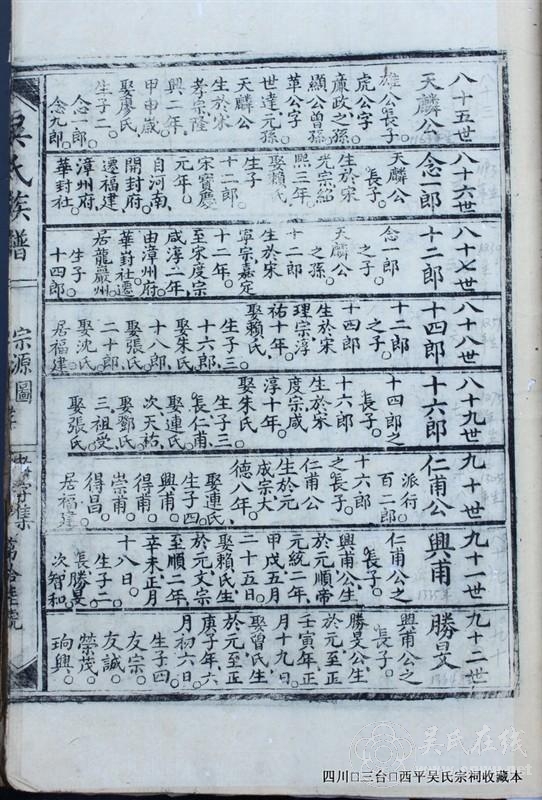 八十五世
天麟公
雄公長子。
虎公字
廉政之孫
顯公曾孫
華公字
世達元孫
天麟公
生於宋
孝宗隆
興二年。
甲申歲
娶廖氏
生子二。
念一郎。
念九郎。
八十六世
念一郎
天麟公
長子。
生於宋
光宗紹
熙三年
娶賴氏
生子
十二郎
宋寶慶
元年。
自河南
開封府。
遷福建
漳州府。
華封社。
八十七世
十二郎
念一郎
之子。
天麟公
之孫。
十二郎
生於宋
寧宗嘉定
十二年。
至宋度宗
咸淳二年。
由漳州府。
華封社遷
居龍巖州
生子
十四郎。
八十八世
十四郎
十二郎
之子。
十四郎
生於宋
理宗淳
祐十年。
娶賴氏。
生子三。
十六郎。
娶朱氏。
十八郎。
娶張氏。
二十郎。
娶沈氏。
居福建
八十九世
十六郎
十四郎之
長子。
十六郎
生於宋
度宗咸
淳十年。
娶朱氏。
生子三。
長仁甫。
娶連氏。
次天祐。
娶鄭氏。
三祖受。
娶張氏。
九十世
仁甫公
派行。
百二郎
十六郎
之長子。
仁甫公
生於元
成宗大
德八年。
娶連氏。
生子四。
興甫。
得甫。
崇甫。
得昌。
居福建。
九十一世
興甫
仁甫公之
長子。
興甫公生
於元順帝
元統二年
甲戌五月
二十五日
娶賴氏生
於元文宗
至順二年
辛未正月
十八日。
生子二
長勝旻。
次智和。
九十二世
勝旻
興甫公之
長子。
勝旻公生
於元至正
壬寅年正
月十九日。
娶曾氏生
於元至正
庚子年六
月初六日。
生子四
友宗。
友誠。
榮茂。
珣興。
吳氏族譜
宗源圖
四川□三台□西平吴氏宗祠收藏本
吴氏在线